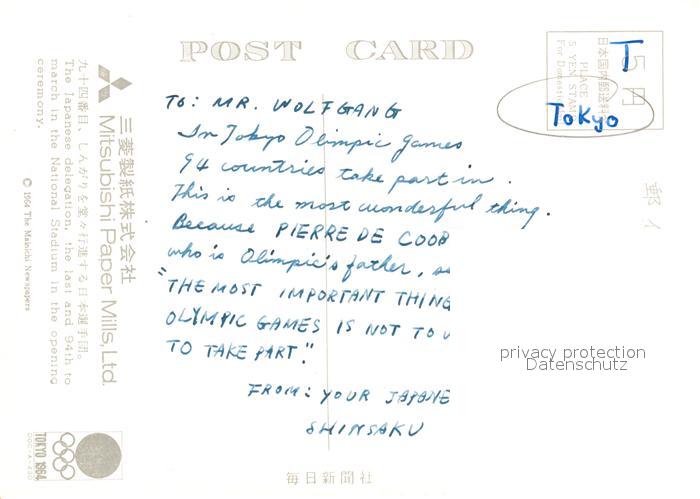 POST CARD
日本国内郵送料
5円
PLACE
5 YEN STAM
For Domestic
T
Tokyo
TO: MR. WOLFGANG
In Tokyo Olimpic Games
94 countries take part in.
This is the most wonderful thing.
Because PIERRE DE COOB
who is Olimpic's father, sa
"THE MOST IMPORTANT THING
OLYMPIC GAMES IS NOT TO
TO TAKE PART."
FROM: YOUR JAPANE
SHINSAKU
privacy protection
Datenschutz
三菱製紙株式会社
Mitsubishi Paper Mills, Ltd.
九十四番目、しんがりを堂々行進する日本選手団。
The Japanese delegation, the last and 94th to
march in the National Stadium in the opening
ceremony.
© 1964 The Mainichi Newspapers
TOKYO 1964
毎日新聞社